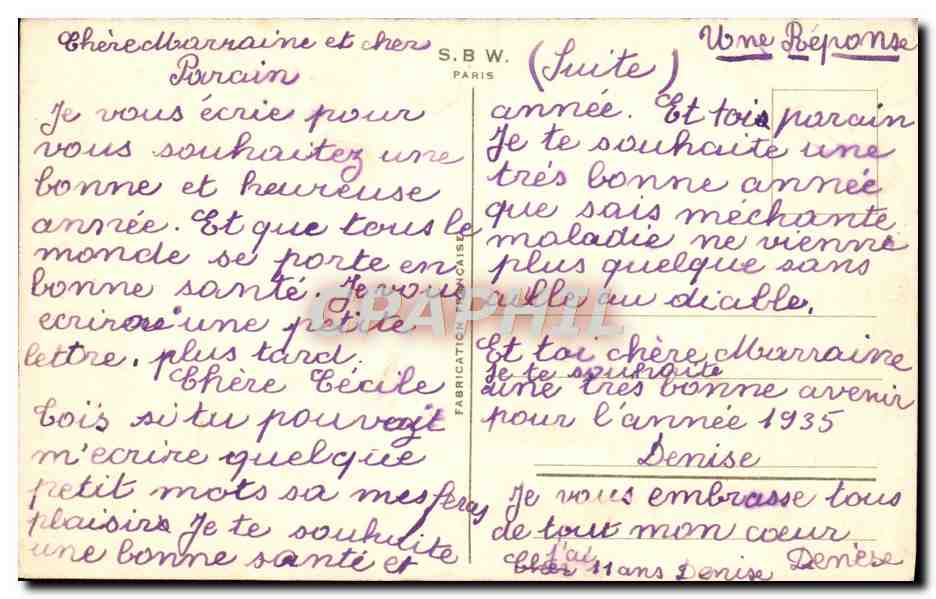 Chère Marraine et cher
Parain
Je vous écrie pour
vous souhaitez une
bonne et heureuse
année. Et que tous le
monde se porte en
bonne santé. Je vous
ecrirai une petite
lettre. plus tard.
Chère Cécile
Toïs si tu pouvait
m'ecrire quelque
petit mots sa mes feras
plaisirs Je te souhaite
une bonne santé et
S.B W.
PARIS
FABRICATION FRANÇAISE
CPARPHIL
Une Réponse
(Suite)
année. Et tois parain
Je te souhaite une
trés bonne année
que sais méchante
maladie ne vienne
plus quelque sans
aille au diable.
Et toi chère Marraine
Je te souhaite
une très bonne avenir
pour l'année 1935
Denise
Je vous embrasse tous
de tout mon coeur
Denèse
j'ai
11 ans Denise